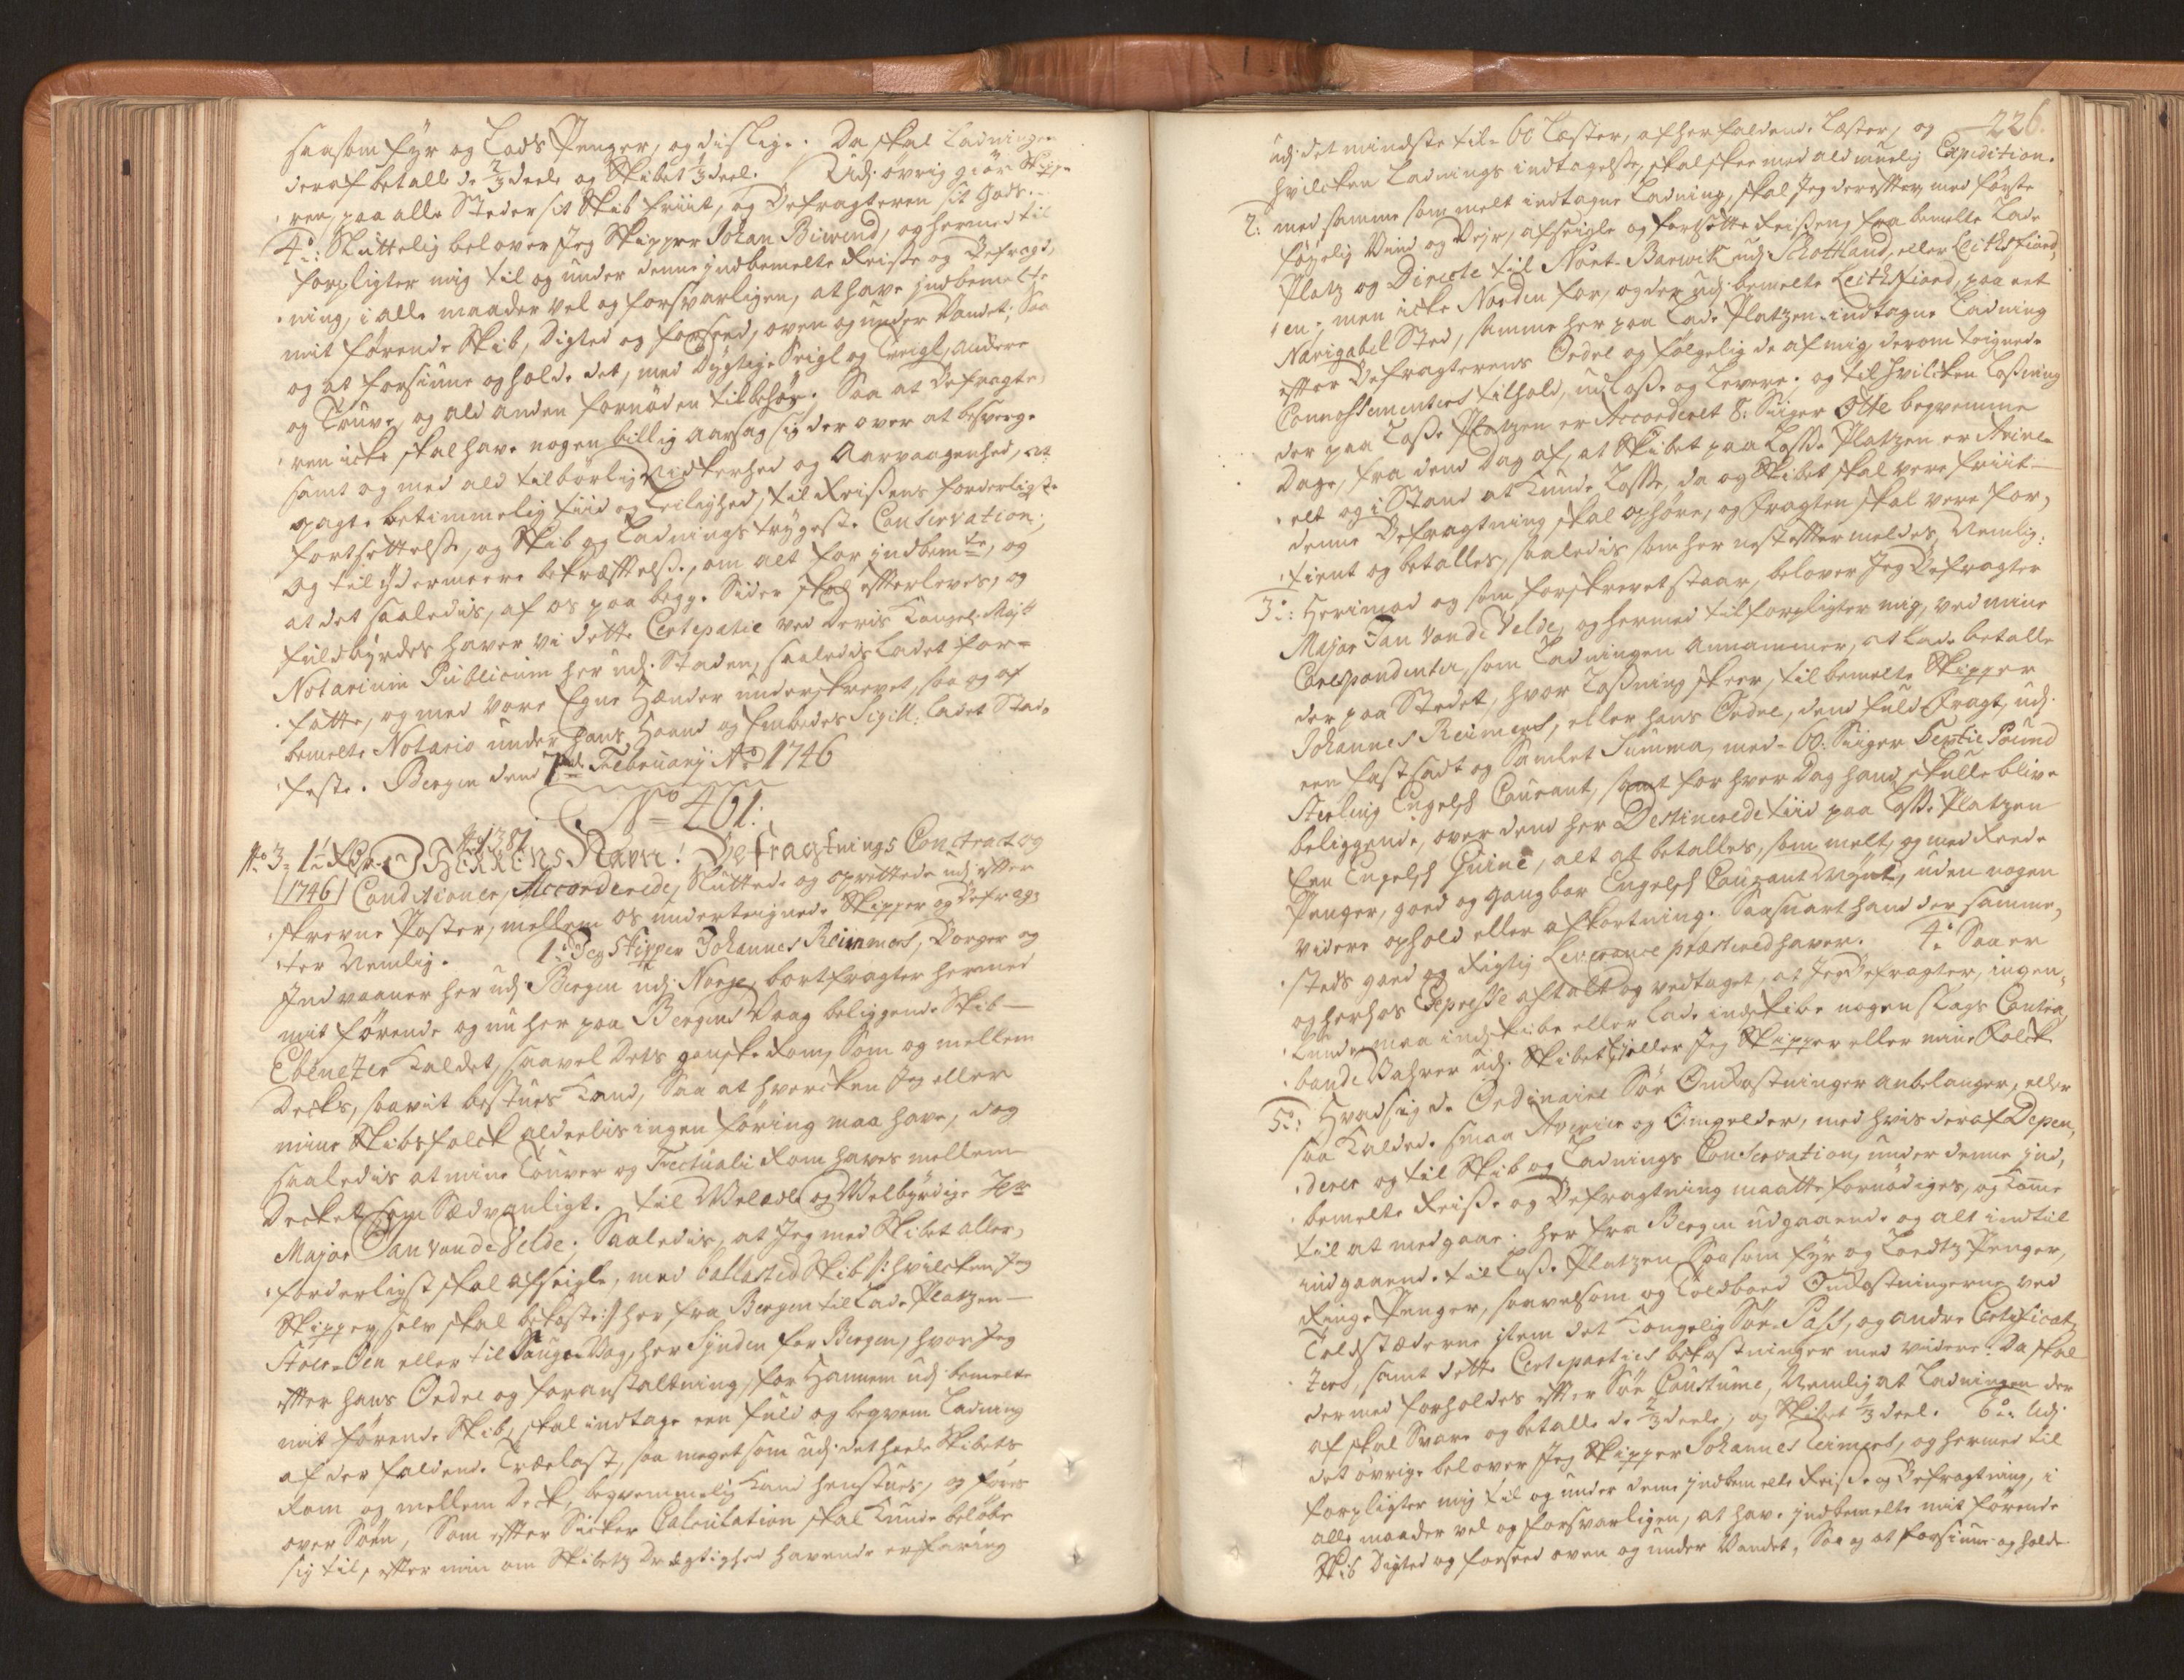 saasom fyr og Lods Penger, og dislige. Da skal Ladningen
deraf betalle de 2/3 deele og Skibet 1/3 deel. Udj øvrig giør Skip-
ren, paa alle Steder sit Skib friit, og Befragteren sit Gods.
4o: Sluttelig belover Jeg Skipper Johan Biwend, og hermed til
forpligter mig til og under denne jndbemelte Reise og Befragt-
ning, i alle maader vel og forsvarligen, at have jndbemelte
mit førende Skib, Digted og forseed, oven og under Vandet; Saa
og at forsiune og holde det, med Dygtige Seigl og Treigl, andere
og Touve, og ald anden fornøden tilbehør. Saa at Befragte-
ren icke skal have nogen billig aarsag sig der over at besverge
samt og med ald tilbørlig Vidkerhed og Aarvaagenhed, at
agte betimmelig tiid og Leilighed, til Reisens forderligste
fortsettelse, og Skib og Ladnings trygeste Conservation;
Og til ydermeere bekræfttelse, om alt for jndbemte, og
at det saaledis, af os paa begge Sider skal efterleves, og
fuldbyrdes haver vi dette Certepatie ved Deris Kongel: Maytt
Notarium Publicum her udj Staden, saaledis Ladet for-
fatte, og med vore Egne Hænder underskrevet, saa og af
bemelte Notario under hans Haand og Embedes Sigill: Ladet Stad-
feste. Bergen dend 7de February Ao 1746
No 461:
No 1381
No 3: 1ne Rdr
1746
Jesu Navn! Befragtnings Contract og
Conditioner, Accorderede, Sluttede og oprettede udj efter
skrevne Poster, mellem os underteignede Skipper og Befrag-
ter Nemlig. 1o: Jeg Skipper Johannes Reimers, Borger og
Indvaaner her udj Bergen udj Norge, bortfragter hermed
mit førende og nu her paa Bergens Vaag beliggende Skib
Ebenezer Kaldet, saavel Dets ganske Rom, Som og mellem
Decks, saavit bestues Kand, Saa at hvercken Jeg eller
mine Skibsfolck alderlis ingen føring maa have, dog
saaledis at mine Touver og Fictuali Rom haves mellem
Decket som Sædvanligt. til Velædle og Velbyrdige Hr
Major Jan van de Velde; Saaledis, at Jeg med Skibet aller-
forderligst skal afseigle, med ballasted Skib /: hvilcken Jeg
Skipper selv skal bekoste :/ her fra Bergen til Lade Platzen
Stoer-Øen eller til Sauge Vog, her Synden for Bergen, hvor Jeg
efter hans Ordre og foranstaltning, for Hannem udj bemelte
mit førende Skib, skal indtage een fuld og beqvem Ladning
af der faldende Trælast, saa meget som udj det heele Skibets
Rom og mellem Deck, beqvemmelig Kand henstues, og føres
over Søen, Som efter Sicker Calculation skal Kunde beløbe
sig til, efter min om Skibetz Drægtighed havende erfaring
226.
udj det mindste til 60 Læster, af her faldende Laster, og
hvilcken Ladnings indtagelse, skal skee med ald muelig Expedition.
2: med samme som melt indtagne Ladning, skal Jeg derefter, med første
føyelig Vind og Vejr, afseigle og fortsette Reisen, fra bemelte Lade
Platz og Directe til Nort-Barwik udj Schottland, eller Leithsfiord,
en, men icke Norden for, og der udj bemelte Leithsfiord, paa eet
Navigabel Sted, samme her paa Lade Platzen indtagne Ladning
efter Befragterens Ordre og følgelig de af mig derom teignede
Connossementers tilhold, udlosse og Levere; og til hvilcken Losning
der paa Losse Platzen er Accorderet 8: Siiger Otte beqvemme
Dage, fra dend Dag af, at Skibet paa Losse Platzen er Arive-
ret og i Stand at Kunde Losse, da og Skibet skal være friit
denne Befragtning skal ophøre, og Fragten skal være for-
tient og betalles, saaledis som her nest efter meldes, Nemlig:
3o: Herimod og som forskrevet staar, belover Jeg Befragter
Major Jan van de Velde, og hermed tilforpligter mig, ved mine
Corespondenter, som Ladningen annammer, at Lade betalle
der paa Stedet, hvor Losning skeer, til bemelte Skipper
Johannes Reimers, eller hans Ordre, dend fuld Fragt, udj
een fastsadt og Samlet Summa, med 60: Siiger Sextie Pound
Sterling Engelsk Courant, samt for hver Dag hand skulle blive
beliggende, over dend her Destinerede tiid paa Losse Platzen
Een Engelsk Guine, alt at betalles, som melt, og med Reede
Penger, goed og gangbar Engelsk Courant Mynt, uden nogen
videre ophold eller afkortning. Saasnart hand der samme-
steds goed og Rigtig Leverance præstered haver. 4o: Saa er
og herhos Expresse aftalt og vedtaget, at Jeg Befragter, ingen-
lunde maa indskibe eller Lade indskibe nogen slags Contra-
bande Vahrer udj Skibet, ej eller Jeg Skipper eller mine Folck
5o: Hvad sig de Ordinaire Søe Omkostninger anbelanger, eller
saa Kaldede smaa Averier og Ungelder, med hvis deraf Depen-
derer og til Skib og Ladnings Conservation, under denne jnd-
bemelte Reise og Befragtning maatte fornødiges, og Komme
til at medgaae. her fra Bergen udgaaende og alt indtil
indgaaende til Losse Platzen, Saasom fyr og Loedtz Penger,
Ringe Penger, saavelsom og Toldboed Omkostningerne ved
Toldstæderne item det Kongelig Søe-Pass, og andre Certificat-
zers, samt dette Certeparties bekostninger med videre: Da skal
dermed forholdes efter Søe Coustume, Nemlig at Ladningen der
af skal Svare og betalle de 2/3 deele, og Skibet 1/3 deel. 6o: Udj
det øvrige belover Jeg Skipper Johannes Reimers, og hermed til
forpligter mig til og under denne jndbemelte Reise og Befragtning, i
alle maader vel og forsvarligen, at have jndbemelte mit førende
Skib Digted og forseed oven og under Vandet, Saa og at forsiune og holde